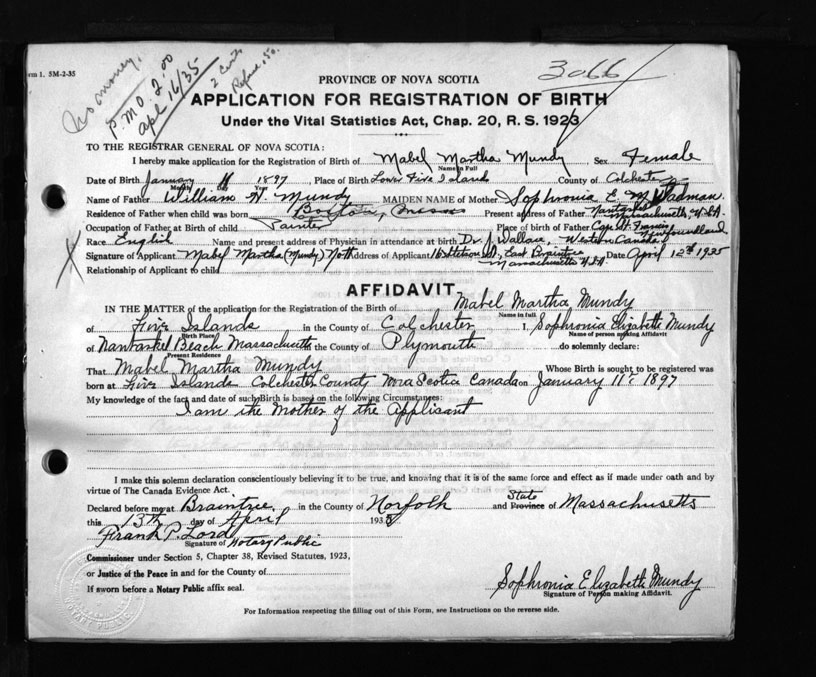 rm 1. 5M-2-35
No money.
P.M.O. 2.00
Apl 16/35
2 Certs
Refund .50.
3066
PROVINCE OF NOVA SCOTIA
APPLICATION FOR REGISTRATION OF BIRTH
Under the Vital Statistics Act, Chap. 20, R. S. 1923
TO THE REGISTRAR GENERAL OF NOVA SCOTIA:
I hereby make application for the Registration of Birth of Mabel Martha Mundy Sex Female
Name in Full
Date of Birth January 11 1897 Place of Birth Lower Five Islands County of Colchester
Month Day Year
Name of Father William H. Mundy MAIDEN NAME of Mother Sophronia E. M.
Residence of Father when child was born Boston, Mass Present address of Father Nantasket Massachusetts U.S.A.
Occupation of Father at Birth of child Painter Place of birth of Father Cape St. Francis Newfoundland
Race English Name and present address of Physician in attendance at birth Dr. J. Wallace, Western Canada
Signature of Applicant Mabel Martha (Mundy) Nott Address of Applicant 16 Stetson St, East Braintree Massachusetts U.S.A. Date April 12th 1935
Relationship of Applicant to child
AFFIDAVIT
IN THE MATTER of the application for the Registration of the Birth of Mabel Martha Mundy
Name in full
of Five Islands in the County of Colchester I, Sophronia Elizabeth Mundy
Birth Place Name of person making Affidavit
of Nantasket Beach Massachusetts in the County of Plymouth do solemnly declare:
Present Residence
That Mabel Martha Mundy Whose Birth is sought to be registered was
born at Five Islands Colchester County Nova Scotia Canada on January 11th 1897
My knowledge of the fact and date of such Birth is based on the following Circumstances:
I am the Mother of the Applicant
I make this solemn declaration conscientiously believing it to be true, and knowing that it is of the same force and effect as if made under oath and by
virtue of The Canada Evidence Act.
Declared before me at Braintree in the County of Norfolk and Province of State Massachusetts
this 13th day of April 1935
Frank P. Lord
Signature of Notary Public
Commissioner under Section 5, Chapter 38, Revised Statutes, 1923,
or Justice of the Peace in and for the County of
If sworn before a Notary Public affix seal.
Sophronia Elizabeth Mundy
Signature of Person making Affidavit.
For Information respecting the filling out of this Form, see Instructions on the reverse side.